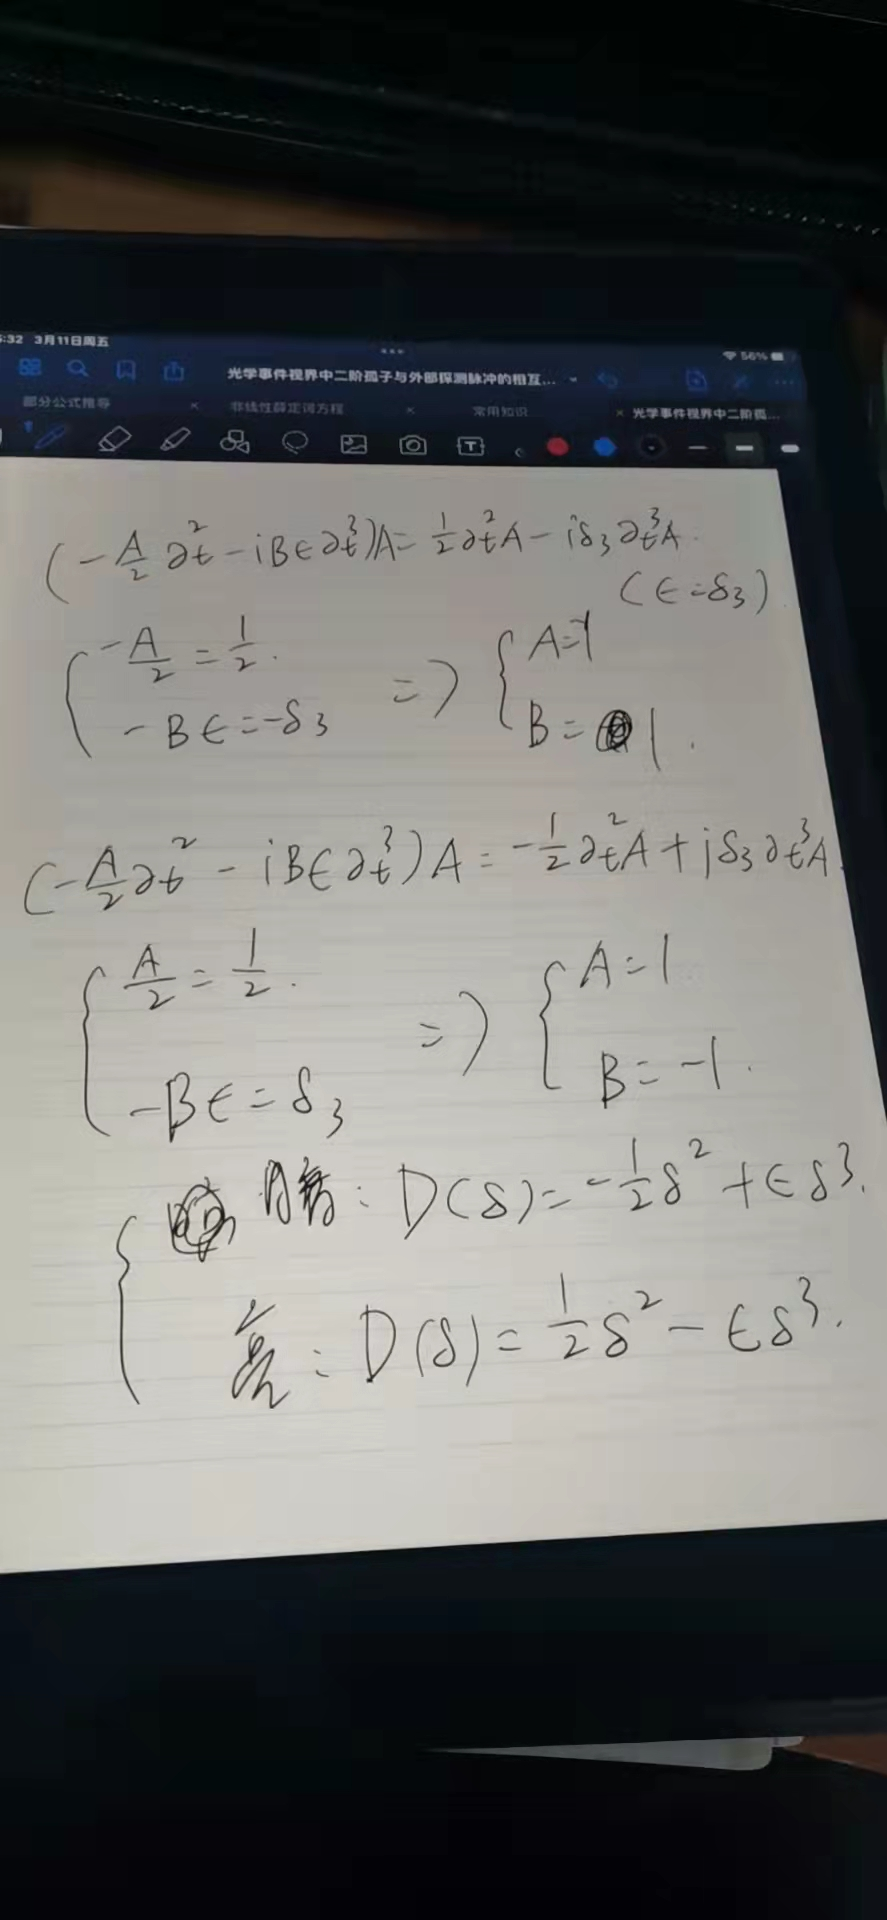 5:32 3月11日周五
56%
光学事件视界中二阶孤子与外部探测脉冲的相互...
部分公式推导 × 非线性薛定谔方程 × 常用知识 × 光学事件视界中二阶孤...
(-A/2 ∂t² - iBϵ∂t³)A = 1/2 ∂t²A - iδ₃∂t³A.
(ϵ=δ₃)
{ -A/2 = 1/2. => { A=-1
-Bϵ = -δ₃ B = 1.
(-A/2 ∂t² - iBϵ∂t³)A = -1/2 ∂t²A + iδ₃∂t³A.
{ A/2 = 1/2. => { A=1
-Bϵ = δ₃ B=-1.
{ 暗: D(δ) = -1/2 δ² + ϵδ³.
亮: D(δ) = 1/2 δ² - ϵδ³.